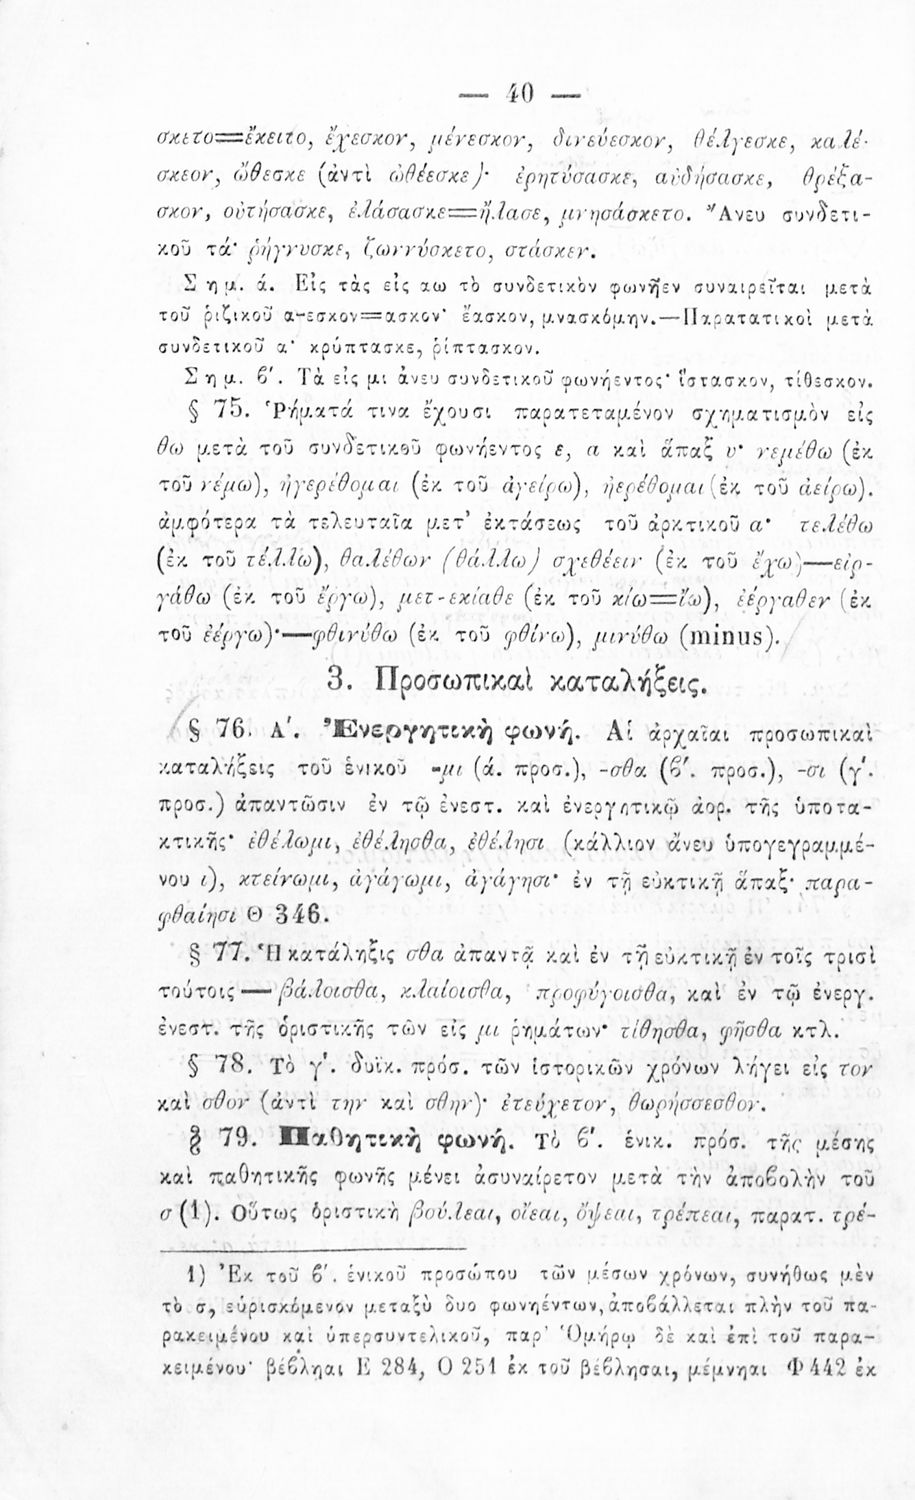 — 40 —
σκετο=ἔκειτο, ἔχεσκον, μένεσκον, δινεύεσκον, θέλγεσκε, καλέ-
σκεον, ὤθεσκε (ἀντὶ ὠθέεσκε)· ἐρητύσασκε, αὐδήσασκε, θρέξα-
σκον, οὐτήσασκε, ἐλάσασκε=ἤλασε, μνησάσκετο. Ἄνευ συνδετι-
κοῦ τά· ῥήγνυσκε, ζωννύσκετο, στάσκεν.
Σημ. ά. Εἰς τὰς εἰς αω τὸ συνδετικὸν φωνῆεν συναιρεῖται μετὰ
τοῦ ῥιζικοῦ α-εσκον=ασκον· ἔασκον, μνασκόμην.—Παρατατικοὶ μετὰ
συνδετικοῦ α· κρύπτασκε, ῥίπτασκον.
Σημ. β΄. Τὰ εἰς μι ἄνευ συνδετικοῦ φωνήεντος· ἵστασκον, τίθεσκον.
§ 75. Ῥήματά τινα ἔχουσι παρατεταμένον σχηματισμὸν εἰς
θω μετὰ τοῦ συνδετικοῦ φωνήεντος ε, α καὶ ἅπαξ υ· νεμέθω (ἐκ
τοῦ νέμω), ἠγερέθομαι (ἐκ τοῦ ἀγείρω), ἠερέθομαι (ἐκ τοῦ ἀείρω).
ἀμφότερα τὰ τελευταῖα μετ' ἐκτάσεως τοῦ ἀρκτικοῦ α· τελέθω
(ἐκ τοῦ τέλλω), θαλέθων (θάλλω) σχεθέειν (ἐκ τοῦ ἔχω)—εἰρ-
γάθω (ἐκ τοῦ ἔργω), μετ-εκίαθε (ἐκ τοῦ κίω=ἴω), ἐέργαθεν (ἐκ
τοῦ ἐέργω)·—φθινύθω (ἐκ τοῦ φθίνω), μινύθω (minus).
3. Προσωπικαὶ καταλήξεις.
§ 76. Α΄. Ἐνεργητικὴ φωνή. Αἱ ἀρχαῖαι προσωπικαὶ
καταλήξεις τοῦ ἑνικοῦ -μι (ά. προσ.), -σθα (β΄. προσ.), -σι (γ΄.
προσ.) ἀπαντῶσιν ἐν τῷ ἐνεστ. καὶ ἐνεργητικῷ ἀορ. τῆς ὑποτα-
κτικῆς· ἐθέλωμι, ἐθέλησθα, ἐθέλησι (κάλλιον ἄνευ ὑπογεγραμμέ-
νου ι), κτείνωμι, ἀγάγωμι, ἀγάγησι· ἐν τῇ εὐκτικῇ ἅπαξ· παρα-
φθαίησι Θ 346.
§ 77. Ἡ κατάληξις σθα ἀπαντᾷ καὶ ἐν τῇ εὐκτικῇ ἐν τοῖς τρισὶ
τούτοις — βάλοισθα, κλαίοισθα, προφύγοισθα, καὶ ἐν τῷ ἐνεργ.
ἐνεστ. τῆς ὁριστικῆς τῶν εἰς μι ῥημάτων· τίθησθα, φῆσθα κτλ.
§ 78. Τὸ γ΄. δυϊκ. πρόσ. τῶν ἱστορικῶν χρόνων λήγει εἰς τον
καὶ σθον (ἀντὶ την καὶ σθην)· ἐτεύχετον, θωρήσσεσθον.
§ 79. Παθητικὴ φωνή. Τὸ β΄. ἑνικ. πρόσ. τῆς μέσης
καὶ παθητικῆς φωνῆς μένει ἀσυναίρετον μετὰ τὴν ἀποβολὴν τοῦ
σ (1). Οὕτως ὁριστικὴ βούλεαι, οἴεαι, ὄψεαι, τρέπεαι, παρατ. τρέ-
1) Ἐκ τοῦ β΄. ἑνικοῦ προσώπου τῶν μέσων χρόνων, συνήθως μὲν
τὸ σ, εὑρισκόμενον μεταξὺ δυο φωνηέντων, ἀποβάλλεται πλὴν τοῦ πα-
ρακειμένου καὶ ὑπερσυντελικοῦ, παρ' Ὁμήρῳ δὲ καὶ ἐπὶ τοῦ παρα-
κειμένου· βέβληαι Ε 284, Ο 251 ἐκ τοῦ βέβλησαι, μέμνηαι Φ 442 ἐκ